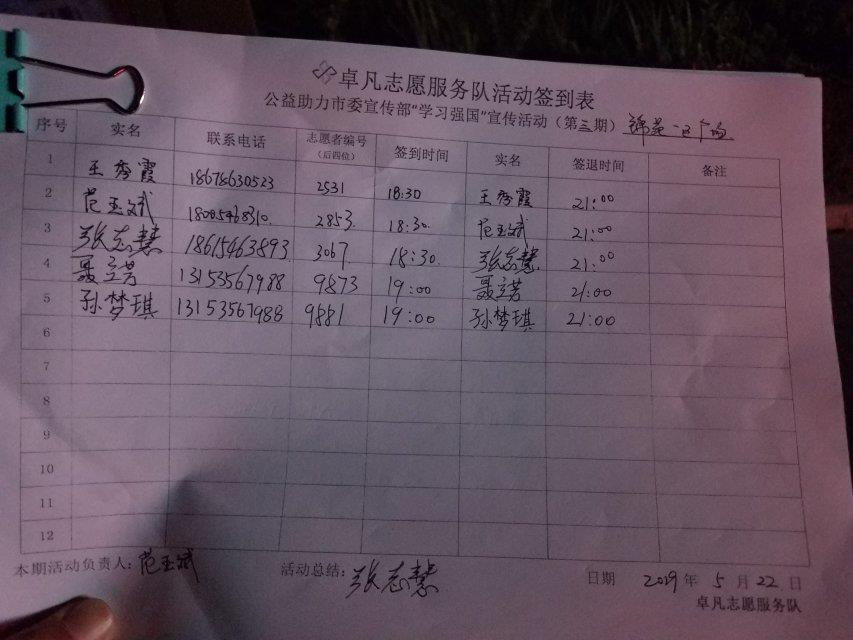 卓凡志愿服务队活动签到表
公益助力市委宣传部"学习强国"宣传活动（第三期） 锦苑一区广场
序号 实名 联系电话 志愿者编号（后四位） 签到时间 实名 签退时间 备注
1 王秀霞 18678630523 2531 18:30 王秀霞 21:00
2 范玉斌 18005468310. 2853. 18:30. 范玉斌 21:00
3 张志慧 18615463893. 3067. 18:30. 张志慧 21:00
4 聂立芳 13153567988 9873 19:00 聂立芳 21:00
5 孙梦琪 13153567988 9881 19:00 孙梦琪 21:00
6
7
8
9
10
11
12
本期活动负责人：范玉斌 活动总结：张志慧 日期 2019年5月22日
卓凡志愿服务队